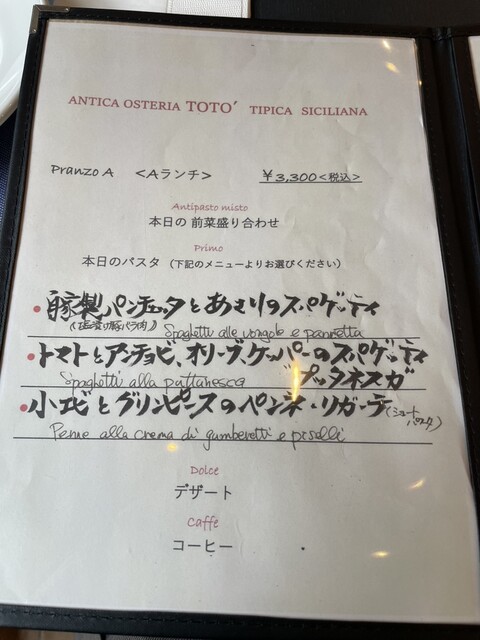 ANTICA OSTERIA TOTO´ TIPICA SICILIANA
Pranzo A <Aランチ> ¥3,300<税込>
Antipasto misto
本日の 前菜盛り合わせ
Primo
本日のパスタ (下記のメニューよりお選びください)
•自家製パンチェッタとあさりのスパゲッティ
(塩漬け豚バラ肉) Spaghetti alle vongole e pannretta
•トマトとアンチョビ、オリーブ、ケッパーのスパゲッティ
Spaghetti alla puttanesca プッタネスカ
•小エビとグリンピースのペンネ・リガーテ(ショートパスタ)
Penne alla crema di gamberetti e piselli
Dolce
デザート
Caffe
コーヒー